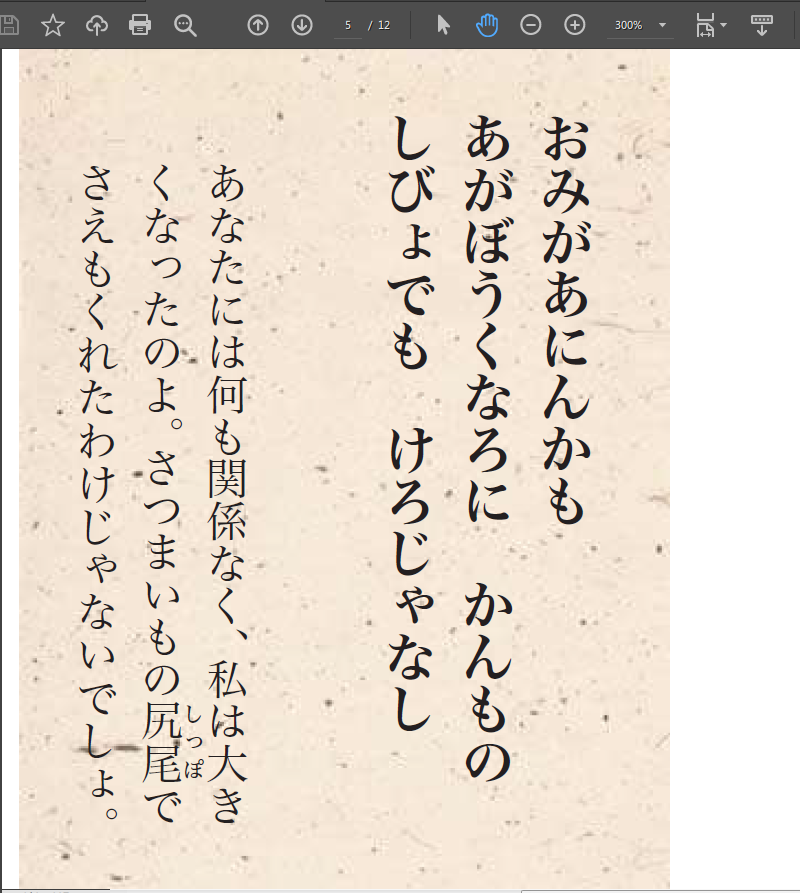 5 / 12 300%
おみがあにんかも
あがぼうくなろに　かんもの
しびょでも　けろじゃなし
あなたには何も関係なく、私は大き
くなったのよ。さつまいもの尻尾で
しっぽ
さえもくれたわけじゃないでしょ。